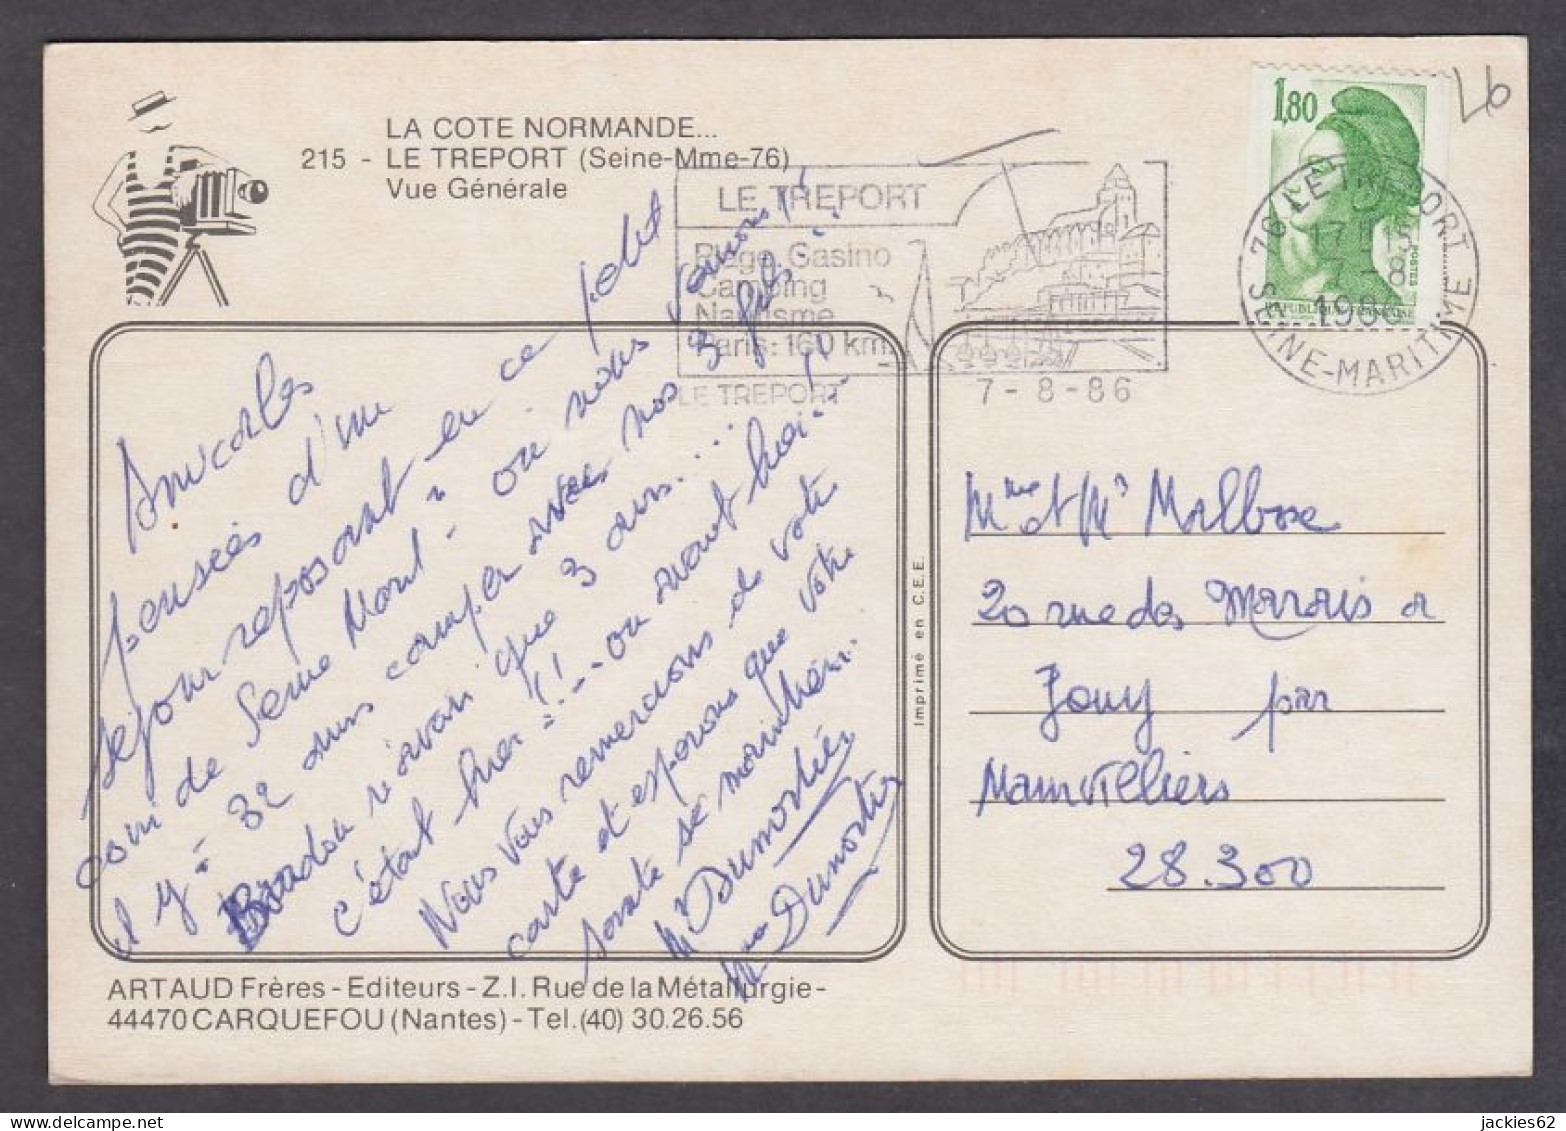 LA COTE NORMANDE...
215 - LE TREPORT (Seine-Mme-76)
Vue Générale
1,80
POSTES
REPUBLIQUE FRANCAISE
76 LE TREPORT
17H15
7-8
1986
SEINE-MARITIME
LE TREPORT
Plage Casino
Camping
Nautisme
Paris: 160 km.
LE TREPORT
7-8-86
Amicales
pensées d'un
séjour reposant en ce petit
coin de Seine Marit. où nous venons
il y a 32 ans camper avec nos 3 fils
n'avait que 3 ans....
c'était hier !! - ou avant hier !!
Nous vous remercions de votre
carte et espérons que votre
santé se maintient.
Mr Dumortier
Mme Dumortier
Mme et Mr Malbose
20 rue des Marais
Jouy par
Mainvilliers
28.300
Imprimé en C.E.E.
ARTAUD Frères - Editeurs - Z.I. Rue de la Métallurgie -
44470 CARQUEFOU (Nantes) - Tel. (40) 30.26.56
jackies62